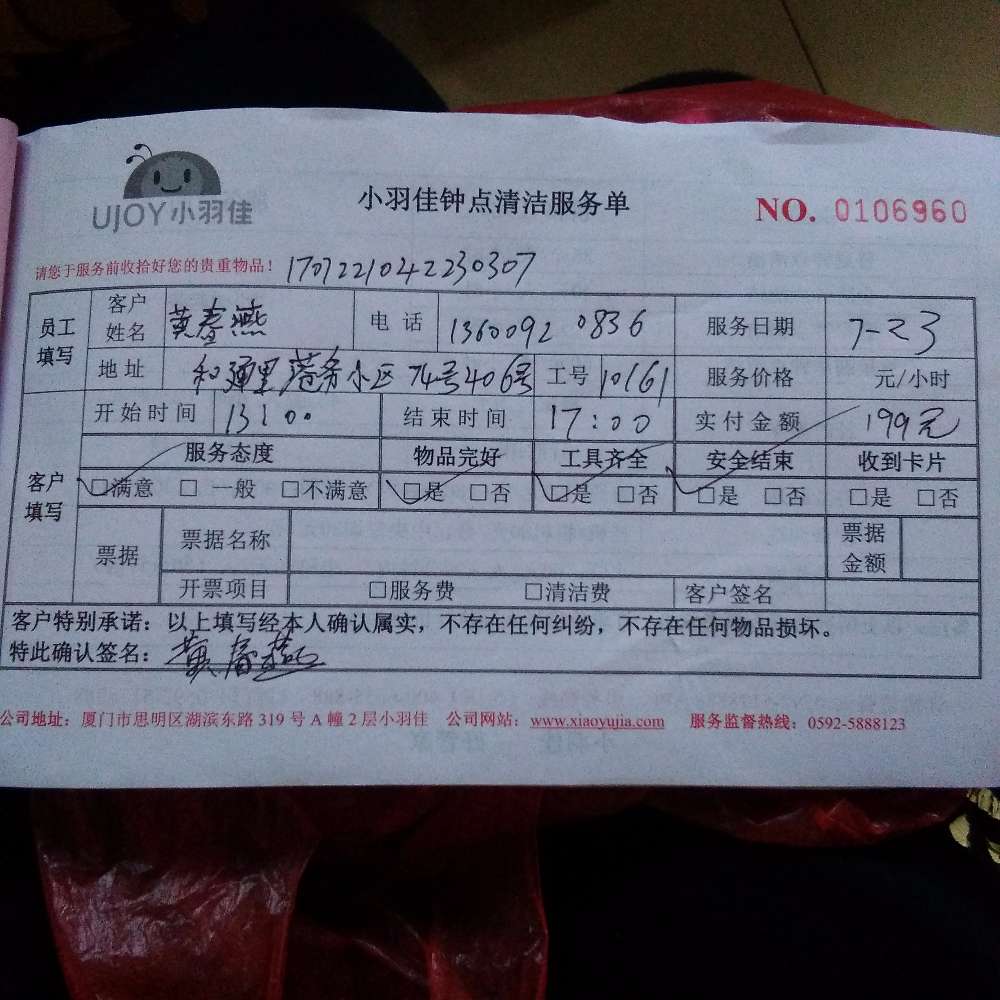 UJOY小羽佳
小羽佳钟点清洁服务单
NO. 0106960
请您于服务前收拾好您的贵重物品！ 1707221042230307
员工填写 客户姓名 黄春燕 电话 1360092 0836 服务日期 7-23
地址 和通里 小区 74号406号 工号 10161 服务价格 元/小时
客户填写 开始时间 13:00 结束时间 17:00 实付金额 199元
服务态度 物品完好 工具齐全 安全结束 收到卡片
☑满意 □一般 □不满意 ☑是 □否 ☑是 □否 ☑是 □否 □是 □否
票据 票据名称 票据金额
开票项目 □服务费 □清洁费 客户签名
客户特别承诺：以上填写经本人确认属实，不存在任何纠纷，不存在任何物品损坏。
特此确认签名：黄春燕
公司地址：厦门市思明区湖滨东路 319 号 A 幢 2 层小羽佳 公司网站：www.xiaoyujia.com 服务监督热线：0592-5888123